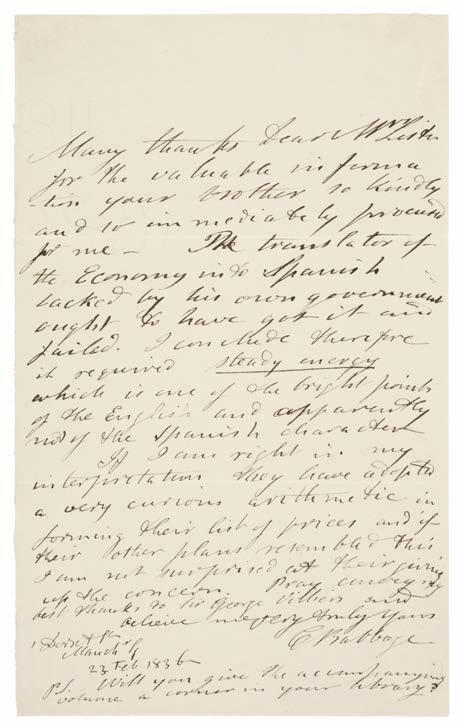 Many thanks Dear Mrs Lister
for the valuable informa
-tion your brother so kindly
and so immediately procured
for me – The translator of
the Economy into Spanish
backed by his own government
ought to have got it and
failed. I conclude therefore
it required steady energy
which is one of the bright points
of the English and apparently
not of the Spanish character
If I am right in my
interpretation they have adopted
a very curious arithmetic in
forming their list of prices and if
their other plans resembled this
I am not surprised at their giving
up the concern. Pray convey my
best thanks to Sir George Villiers and
believe me very truly yours
C Babbage
1 Dorset St
Manch Sq
23 Feb 1836
PS. Will you give the accompanying
volume a corner in your library?